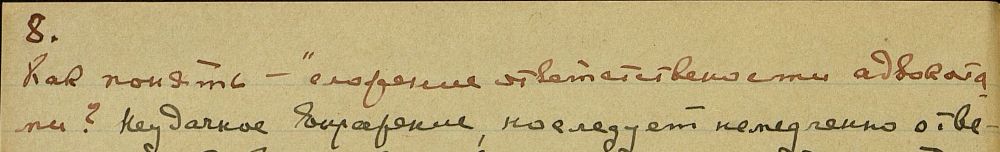 8.
Как понять – "сложение ответственности адвоката-
ми? Неудачное выражение, последует немедленно отве-